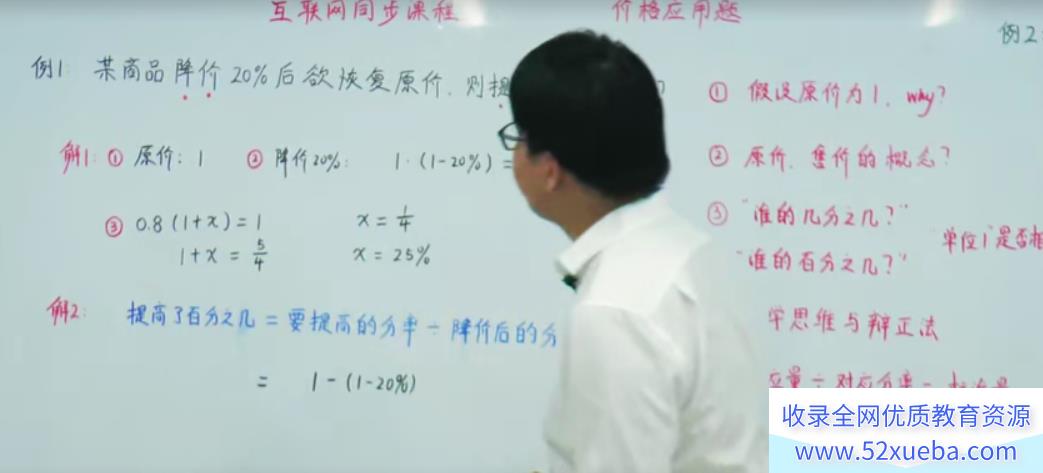 互联网同步课程 价格应用题
例2
例1: 某商品降价20%后欲恢复原价, 则提
① 假设原价为1, why?
解1: ① 原价: 1 ② 降价20%: 1·(1-20%) =
② 原价、售价的概念?
③ 0.8(1+x)=1 x=1/4
1+x=5/4 x=25%
③ "谁的几分之几?"
"谁的百分之几?"
"单位1"是否相
解2: 提高了百分之几 = 要提高的分率 ÷ 降价后的分
学思维与辩正法
= 1-(1-20%)
应量÷对应分率=
收录全网优质教育资源
www.52xueba.com